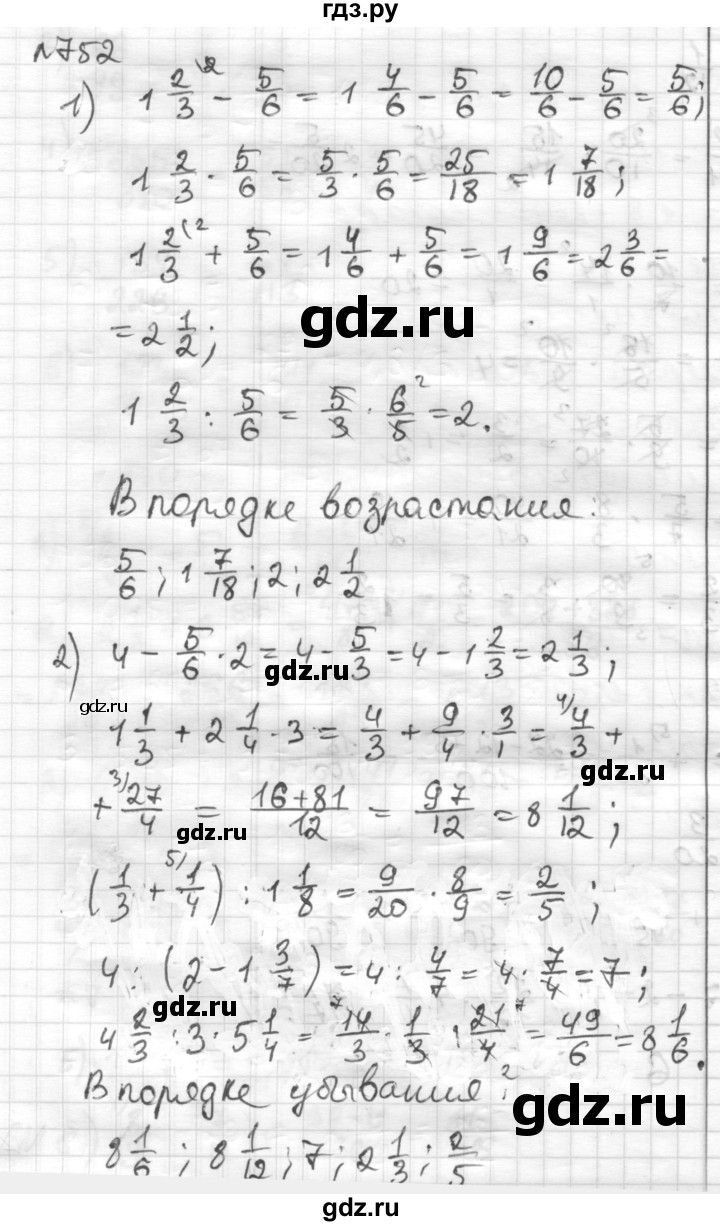 гдз.ру
№752
1) 1 2/3 \2 - 5/6 = 1 4/6 - 5/6 = 10/6 - 5/6 = 5/6;
1 2/3 · 5/6 = 5/3 · 5/6 = 25/18 = 1 7/18;
1 2/3 (2 + 5/6 = 1 4/6 + 5/6 = 1 9/6 = 2 3/6 =
gdz.ru
= 2 1/2;
1 2/3 : 5/6 = 5/3 · 6/5 2 = 2.
В порядке возрастания:
5/6; 1 7/18; 2; 2 1/2
2) 4 - 5/6 · 2 = 4 - 5/3 = 4 - 1 2/3 = 2 1/3;
gdz.ru
gdz.ru
1 1/3 + 2 1/4 · 3 = 4/3 + 9/4 · 3/1 = 4) 4/3 +
gdz.ru
+ 3) 27/4 = 16+81/12 = 97/12 = 8 1/12;
gdz.ru
(1/3 + 5) 1/4) : 1 1/8 = 9/20 · 8/9 = 2/5;
4 : (2 - 1 3/7) = 4 : 4/7 = 4 · 7/4 = 7;
gdz.ru
4 2/3 : 3 · 5 1/4 = 7 14/3 · 1/3 · 21/4 7 2 = 49/6 = 8 1/6.
В порядке убывания:
gdz.ru
8 1/6; 8 1/12; 7; 2 1/3; 2/5
gdz.ru